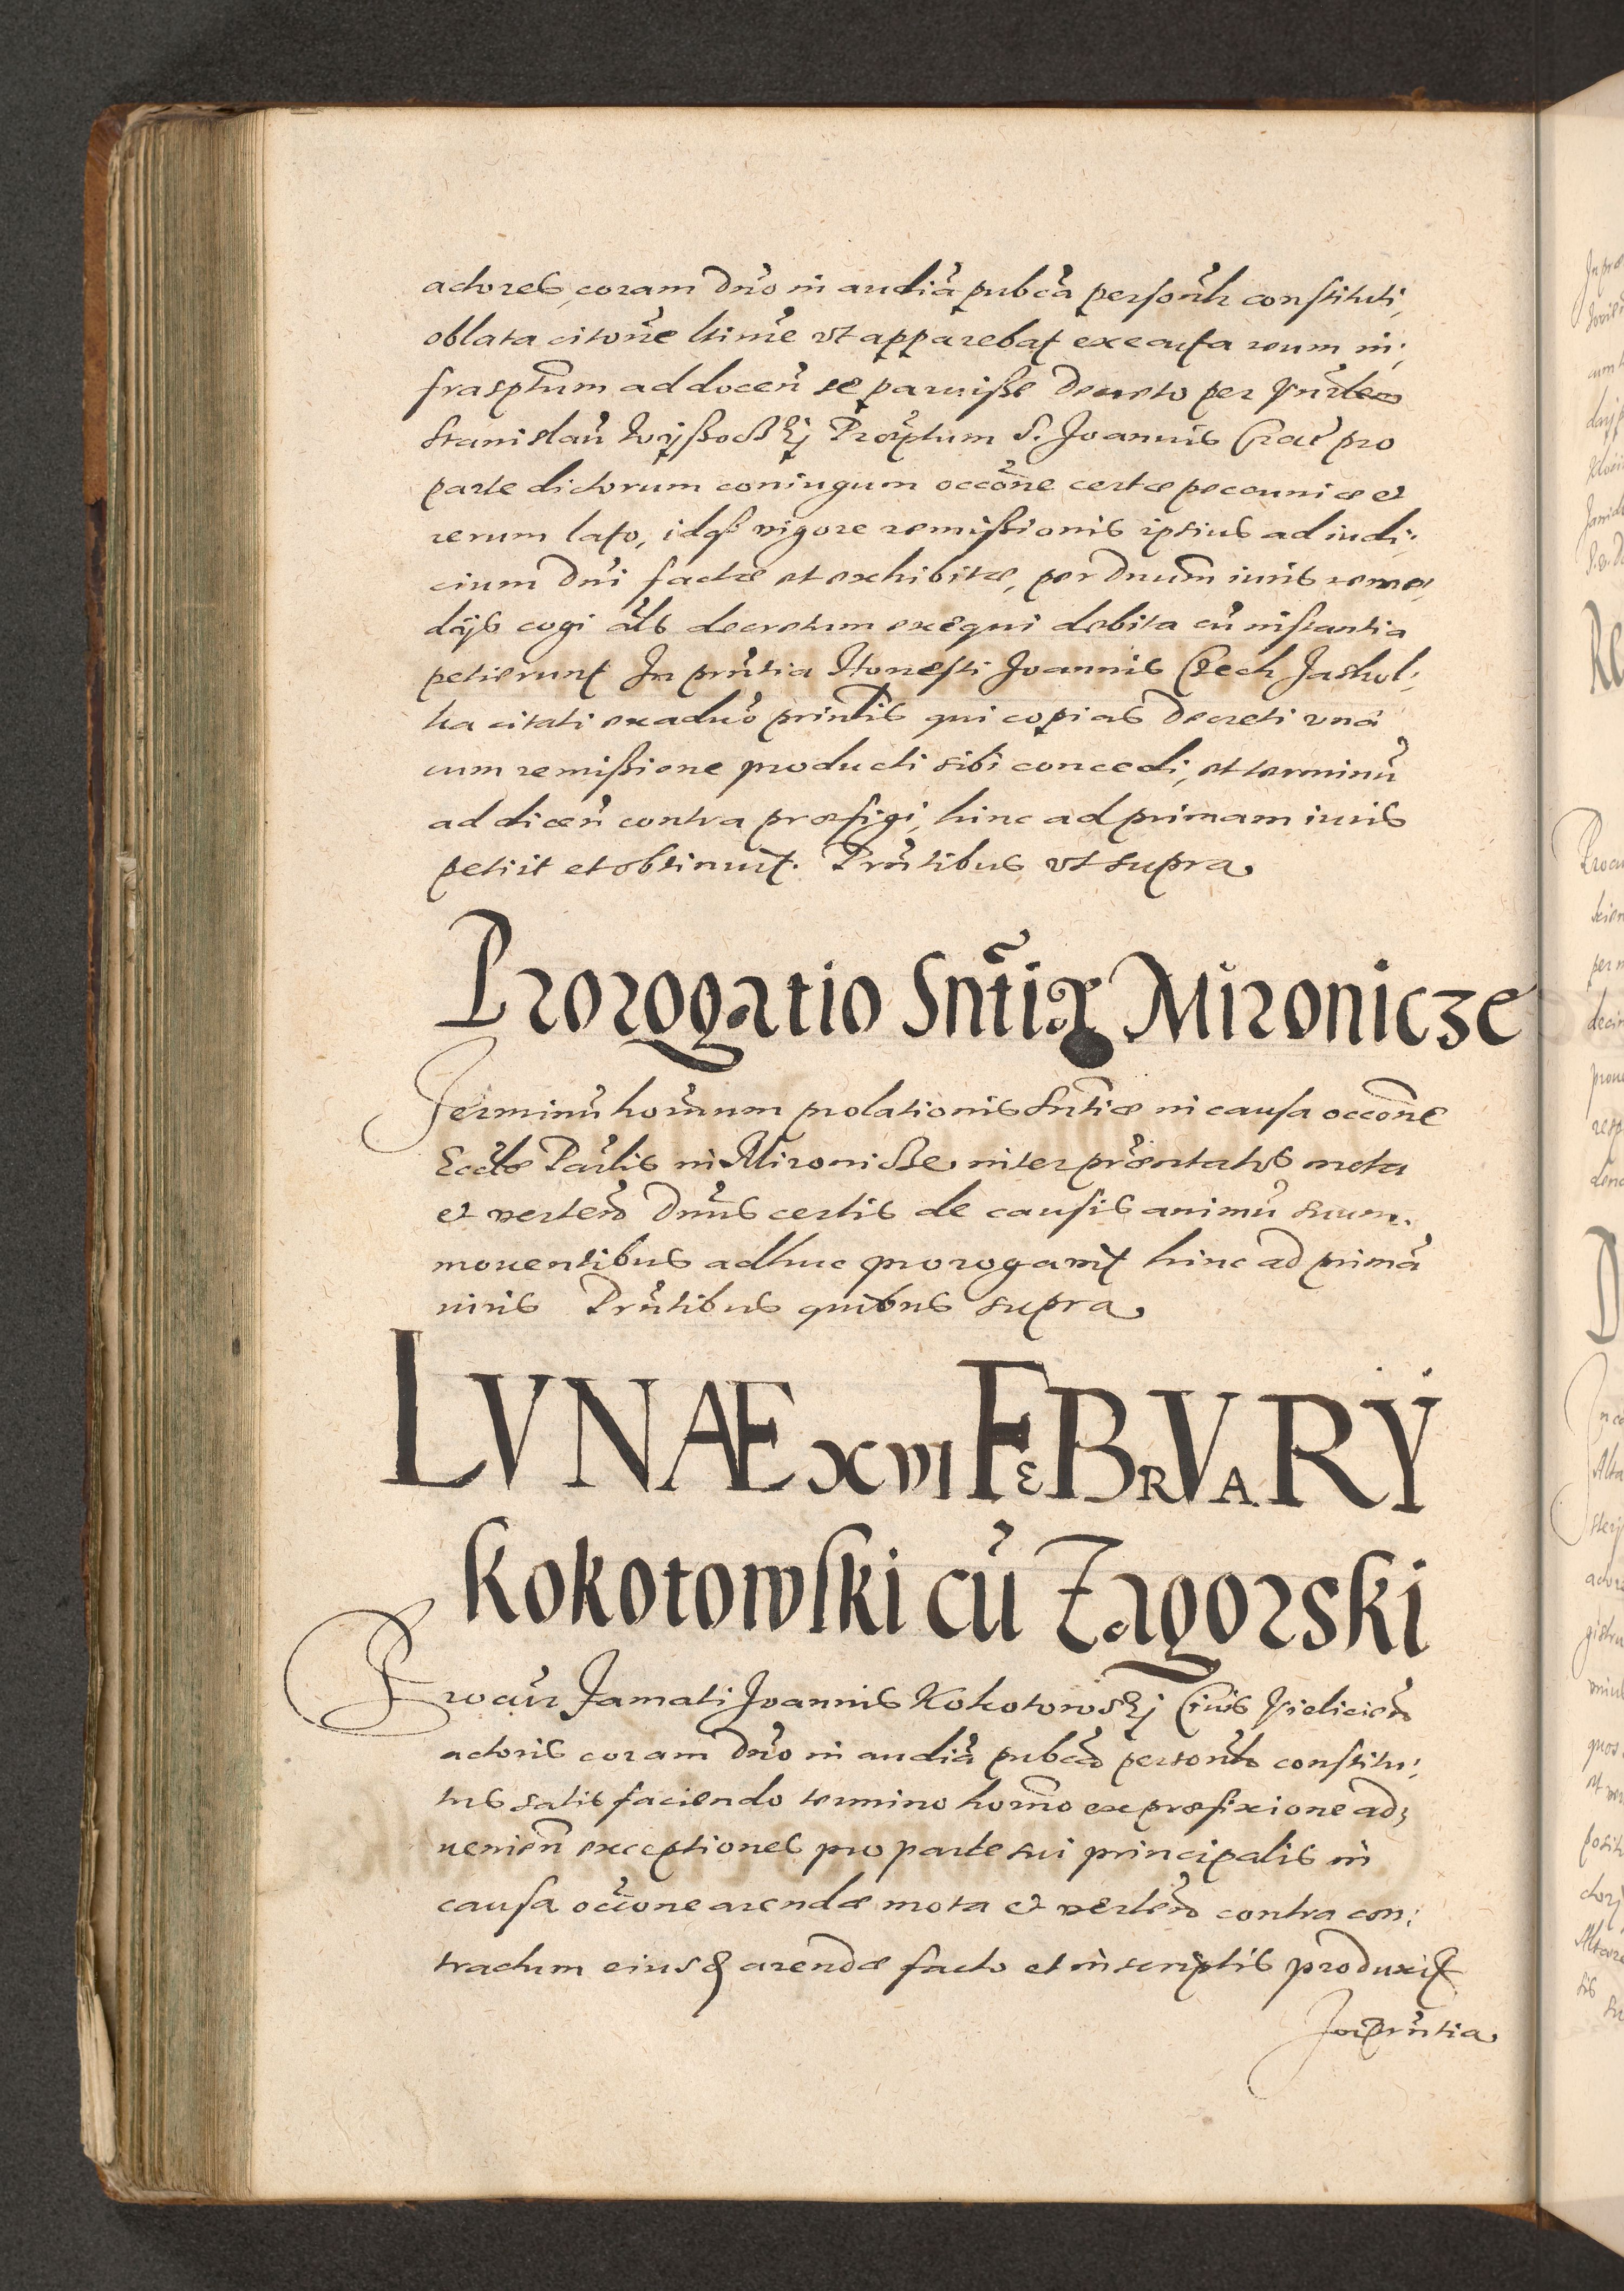 actores, coram Dn̄o in audiā pubcā personl̄r constituti,
oblata citōne ltīme vt apparebat executa reum in:
frasptum ad docen̄ se paruiße Decreto per
Stanislaū Wÿßockÿ Præptum S. Joannis Crac̄ pro
parte dictorum coniugum occōne certæ pecuniæ et
rerum lato, idq̃ vigore remißionis ipsius ad iudi:
cium Dn̄i factæ et exhibitæ, per Dnum̄ iuris reme,
dijs cogi al̄s decretum exequi debita cū instantia
petierunt In prn̄tia Honesti Joannis Czech Jaskul:
ka citati ex aduo prin̄lis qui copias Decreti vna
cum remißione producti sibi concedi, et terminū
ad dicen̄ contra præfigi, hinc ad primam iuris
petiit et obtinuit. Prn̄tibus vt supra
Prorogatio Sn̄tiæ Mironicze
Terminū hon̄rnum prolationis Sn̄tiæ in causa occōne
Eccl̄æ Parl̄is in Mironicze inter præntatos mota
et verten̄ Dnus̄ certis de causis animū suum
mouentibus adhuc prorogauit hinc ad primā
iuris Prn̄tibus quibus supra
LVNÆ XVI FEBRVARY
Kokotowski cū Zagorski
Procur̄ Famati Joannis Kokotowskÿ Ciuis Vielicien̄
actoris coram Dn̄o in audiā pubcā personl̄r constitu:
tus satis faciendo termino horn̄o ex præfixione ad,
uenien̄ exceptiones pro parte sui principalis in
causa occ̄one arendæ mota et verten̄ contra con:
tractum eiusd arendæ facto et in scriptis produxit
In prn̄tia